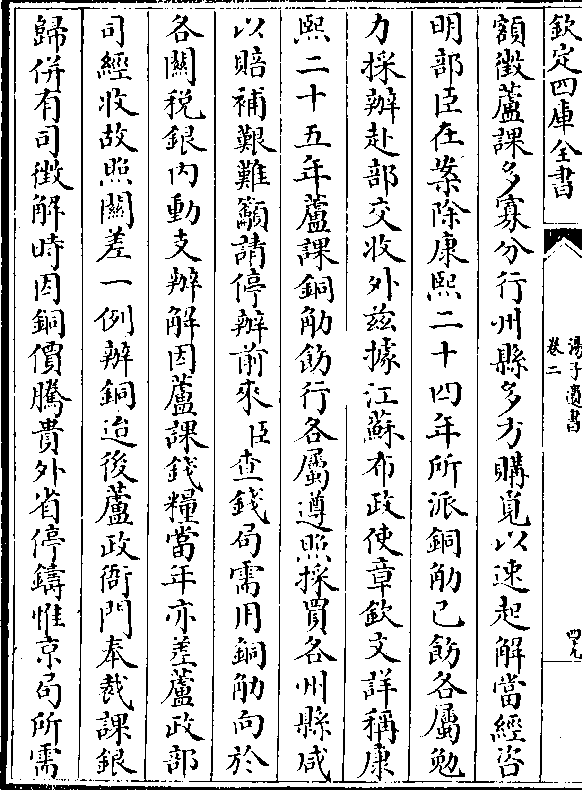 欽定四庫全書
湯子遺書
卷二
四九
額徵蘆課多寡分行州縣多方購覓以速起解當經咨
明部臣在案除康熙二十四年所派銅觔已飭各屬勉
力採辦赴部交收外茲據江蘇布政使章欽文詳稱康
熙二十五年蘆課銅觔飭行各屬遵照採買各州縣咸
以賠補艱難籲請停辦前來臣查錢局需用銅觔向於
各關稅銀內動支辦解因蘆課錢糧當年亦差蘆政部
司經收故照關差一例辦銅迨後蘆政衙門奉裁課銀
歸併有司徵解時因銅價騰貴外省停鑄惟京局所需